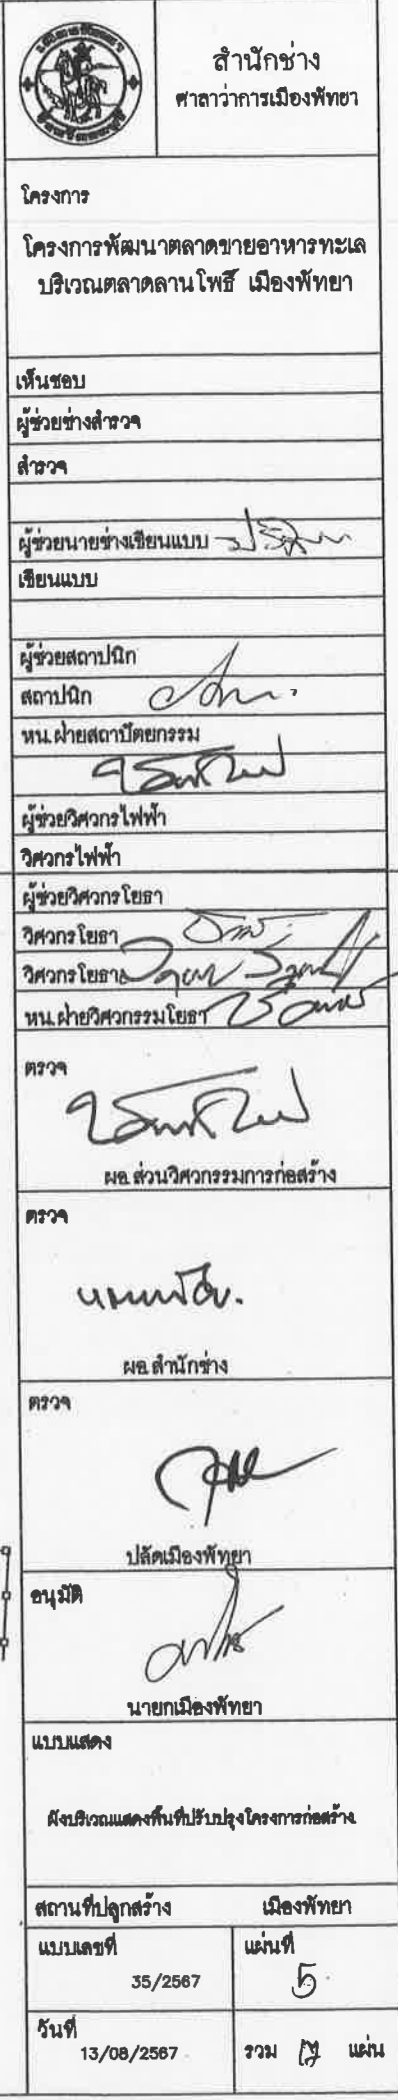 สำนักช่าง
ศาลาว่าการเมืองพัทยา
โครงการ
โครงการพัฒนาตลาดขายอาหารทะเล
บริเวณตลาดลานโพธิ์ เมืองพัทยา
เห็นชอบ
ผู้ช่วยช่างสำรวจ
สำรวจ
ผู้ช่วยนายช่างเขียนแบบ
เขียนแบบ
ผู้ช่วยสถาปนิก
สถาปนิก
หน.ฝ่ายสถาปัตยกรรม
ผู้ช่วยวิศวกรไฟฟ้า
วิศวกรไฟฟ้า
ผู้ช่วยวิศวกรโยธา
วิศวกรโยธา
วิศวกรโยธา
หน.ฝ่ายวิศวกรรมโยธา
ตรวจ
ผอ.ส่วนวิศวกรรมการก่อสร้าง
ตรวจ
ผอ.สำนักช่าง
ตรวจ
ปลัดเมืองพัทยา
อนุมัติ
นายกเมืองพัทยา
แบบแสดง
ผังบริเวณแสดงพื้นที่ปรับปรุงโครงการก่อสร้าง
สถานที่ปลูกสร้าง เมืองพัทยา
แบบเลขที่ แผ่นที่
35/2567 5
วันที่
13/08/2567 รวม แผ่น